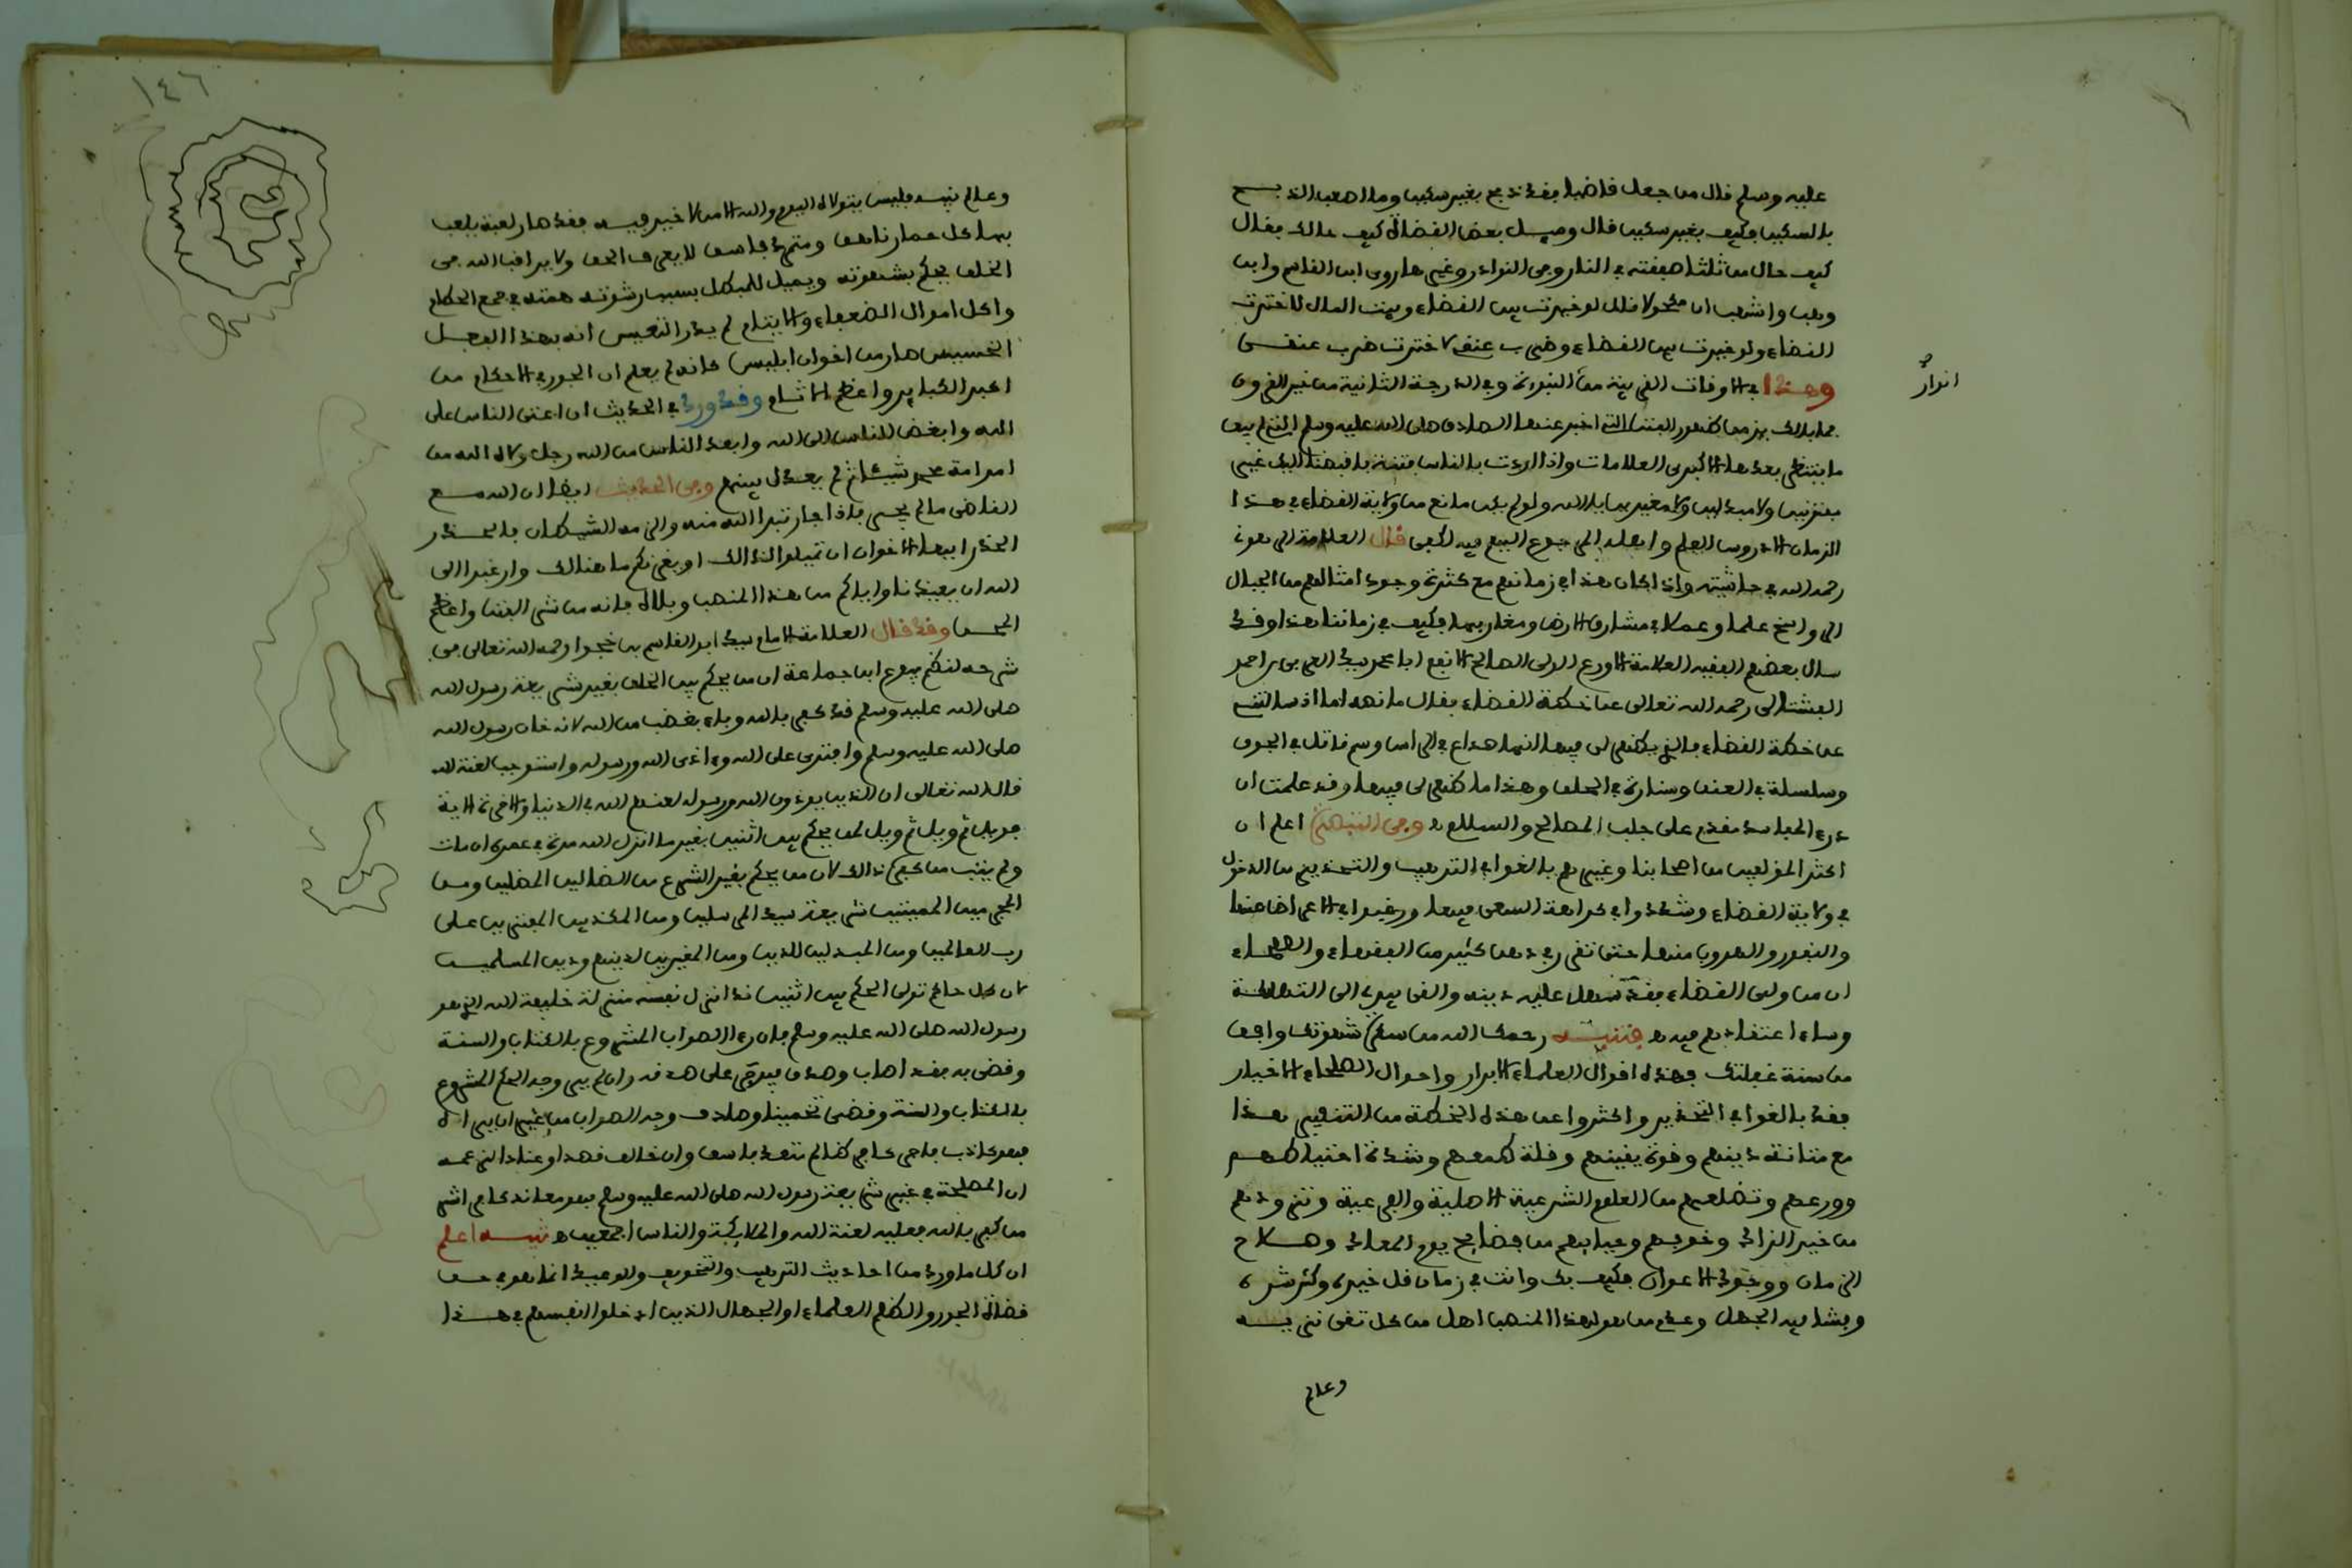 عليه وسلم قال من جعل قاضيا فقد ذبح بغير سكين وما اصعب الذبح
بالسكين فكيف بغير سكين قال وسيل بعض القضاة كيف حالك فقال
كيف حال من ثلثا صفقته في النار وفي النوادر وغيره ما روى ابن القاسم وابن
وهب واشهب ان مكحولا قال لو خيرت بين القضاء وبيت المال لاخترت
القضاء ولو خيرت بين القضاء وضرب عنقي لاخترت ضرب عنقي
وهذا في الاوقات القريبة من النبوءة وفي الدرجة الثانية من خير القرون
فما بالك بزمن ظهور الفتن التي اخبر عنها الصادق صلى الله عليه وسلم التي لم يبق
ما ينتظر بعدها الا كبرى العلامات واذا اردت بالناس فتنة فاقبضنا اليك غير
مفتونين ولا مبدلين ولا مغيرين يا الله ولو لم يكن مانع من ولاية القضاء في هذا
الزمان الا دروس العلم واهله الى رجوع البيع فيه لكفى قال العلامة الرهوني
رحمه الله في حاشيته واذا كان هذا في زمانهم مع كثرة وجود امثالهم من الجبال
الرواسخ علما وعملا في مشارق الارض ومغاربها فكيف في زماننا هذا وقد
سال بعضهم الفقيه العلامة الاورع الولي الصالح الانفع ابا محمد سيد العربي بن احمد
الفشتالي رحمه الله تعالى عن خطة القضاء فقال ما نصه اما اذ سالتني
عن خطة القضاء فالذي يظهر لي فيها انها صداع في الراس وسم قاتل في الجوف
وسلسلة في العنق وسنارة في الحلق وهذا ما ظهر لي فيها وقد علمت ان
درء المفاسد مقدم على جلب المصالح والسلام وفي التبصرة اعلم ان
اكثر المولفين من اصحابنا وغيرهم بالغوا في الترهيب والتحذير من الدخول
في ولاية القضاء وشددوا في كراهة السعي فيها ورغبوا في الاعراض عنها
والنفور والهروب منها حتى تقرر في ذهن كثير من الفقهاء والصلحاء
ان من ولي القضاء فقد سهل عليه دينه والقى بيده الى التهلكة
وساء اعتقادهم فيه فتنبه رحمك الله من سكر شهوتك وافق
من سنة غفلتك فهذه اقوال العلماء الابرار واحوال الصلحاء الاخيار
فقد بالغوا في التحذير واكثروا عن هذه الخطة من التنفير هذا
مع متانة دينهم وقوة يقينهم وقلة طمعهم وشدة احتياطهم
وورعهم وتضلعهم من العلوم الشرعية الاصلية والفرعية وتزودهم
من خير الزاد وخوفهم وحيايهم من فضايح يوم المعاد وصلاح
الزمان ووجود الاعوان فكيف بك وانت في زمان قل خيره وكثر شره
وفشا فيه الجهل وعدم من هو لهذا المنصب اهل من كل تقي نزيه
وعالم
انوار
١٤٦
وعالم نبيه فليس يتولاه اليوم والله الا من لا خير فيه فقد صار لعبة يلعب
بها كل حمار ناهق ومتمرد فاسق لا يعرف الحق ولا يراقب الله في
الخلق يحكم بشهوته ويميل للباطل بسبب رشوته همته في جمع الحطام
واكل اموال الضعفاء والايتام لم يدر التعيس انه بهذا الفعل
الخسيس صار من اخوان ابليس كانه لم يعلم ان الجور في الاحكام من
اكبر الكباير واعظم الاثام وقد ورد في الحديث ان اعتى الناس على
الله وابغض الناس الى الله وابعد الناس من الله رجل ولاه الله من
امر امة محمد شيئا ثم لم يعدل بينهم وفي الحديث ايضا ان الله مع
القاضي ما لم يجر فاذا جار تبرا الله منه والزمه الشيطان فالحذر
الحذر ايها الاخوان ان تميلوا لذالك او يغرنكم ما هنالك وارغبوا الى
الله ان يعيذنا واياكم من هذا المنصب وبلاه فانه من شر الفتن واعظم
المحن وقد قال العلامة الامام سيد ابو القاسم بن خجوا رحمه الله تعالى في
شرحه لنظم بيوع ابن جماعة ان من يحكم بين الخلق بغير شرع رسول الله
صلى الله عليه وسلم فقد كفر بالله وباء بغضب من الله لانه خان رسول الله
صلى الله عليه وسلم وافترى على الله وءاذى الله ورسوله واستوجب لعنة الله
قال الله تعالى ان الذين يوذون الله ورسوله لعنهم الله في الدنيا والاخرة الاية
فويل ثم ويل ثم ويل لمن يحكم بين اثنين بغير ما انزل الله مرة في عمره ان مات
ولم يتب من كفره ذالك لان من يحكم بغير الشرع من الضالين المضلين ومن
المجرمين المميتين شريعة سيد المرسلين ومن المكذبين المفترين على
رب العالمين ومن المبدلين للدين ومن المغيرين لدينهم ودين المسلمين
لان كل حاكم تولى الحكم بين اثنين قد انزل نفسه منزلة خليفة الله الذي هو
رسول الله صلى الله عليه وسلم فان رءا الصواب المشروع بالكتاب والسنة
وقضى به فقد اصاب وصدق فيوجر على صدقه وان لم ير وجه الحكم المشروع
بالكتاب والسنة وقضى تخمينا وصادف وجه الصواب من غير ان يراه
فهو كاذب فاجر كافر ظالم متعد فاسق وان خالف قصدا وعنادا لزعمه
ان المصلحة في غير شريعة رسول الله صلى الله عليه وسلم فهو معاند كافر اشر
من كفر بالله فعليه لعنة الله والملائكة والناس اجمعين تنبيه اعلم
ان كل ما ورد من احاديث الترهيب والتخويف والوعيد انما هو في حق
قضاة الجور والظلم العلماء او الجهال الذين ادخلوا انفسهم في هذا